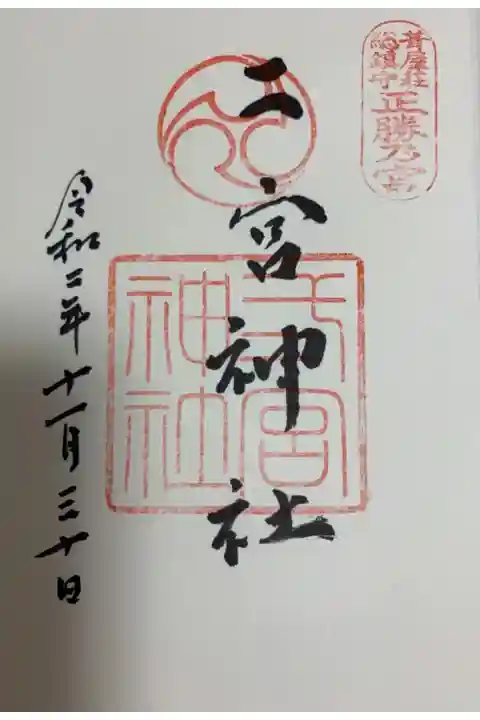 葺屋荘
総鎮守
正勝乃宮
二宮神社
宮
神社
令和二年十一月三十日